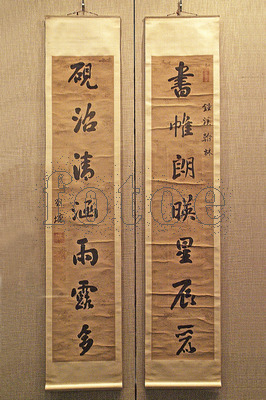 書帷朗暎星辰
硯沼清涵雨露多
劉墉
fotoe